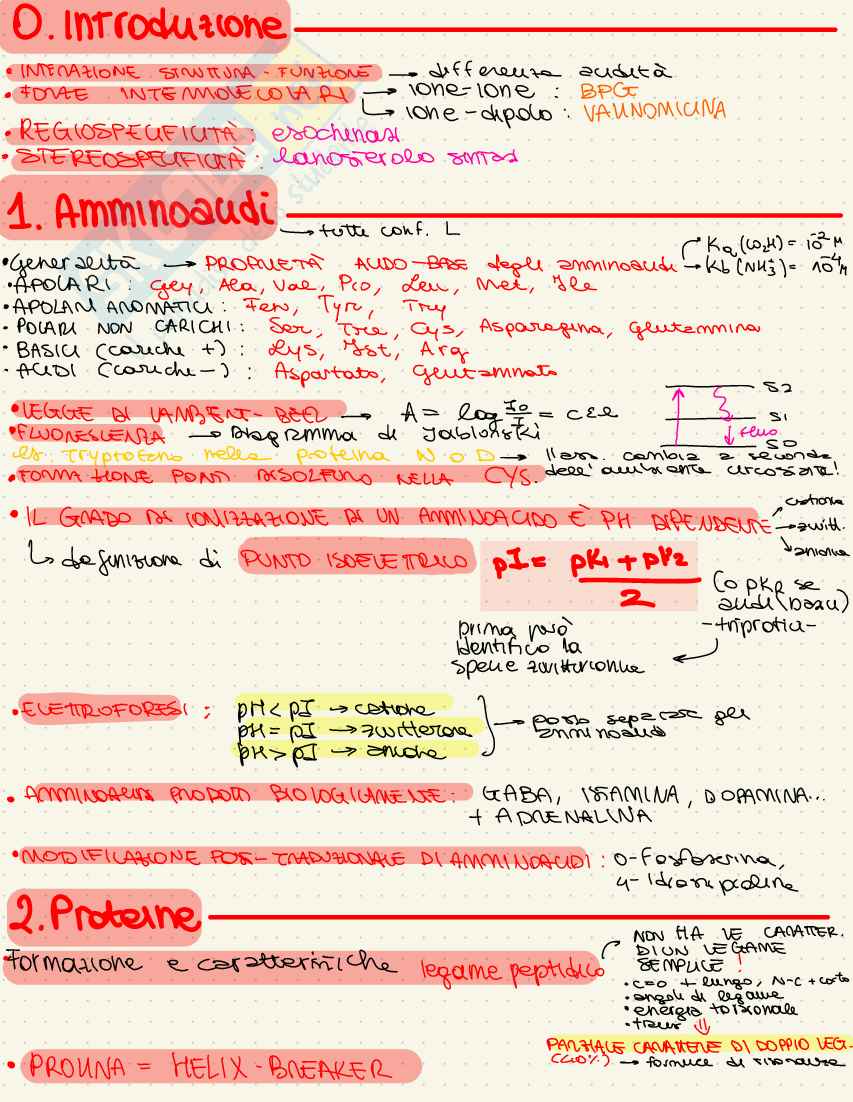 0. Introduzione
• INTERAZIONE STRUTTURA-FUNZIONE → differenza acidità
• FORZE INTERMOLECOLARI → ione-ione : BPG
↳ ione-dipolo : VALINOMICINA
• REGIOSPECIFICITÀ : esochinasi
• STEREOSPECIFICITÀ : lanosterolo sintasi
1. Amminoacidi
→ tutte conf. L
• Generalità → PROPRIETÀ ACIDO-BASE degli amminoacidi → Ka (CO2H) = 10⁻² M
→ Kb (NH3⁺) = 10⁻⁴ M
• APOLARI : Gly, Ala, Val, Pro, Leu, Met, Ile
• APOLARI AROMATICI : Fen, Tyr, Try
• POLARI NON CARICHI : Ser, Tre, Cys, Asparagina, glutammina
• BASICI (cariche +) : Lys, Ist, Arg
• ACIDI (cariche -) : Aspartato, Glutammato
• LEGGE DI LAMBERT-BEER → A = log I0/I = c ε l
• FLUORESCENZA → Diagramma di Jablonski
S2
S1
fluo
S0
es. tryptofano nella proteina N o D → l'ass. cambia a seconda
dell'ambiente circostante!
• FORMAZIONE PONTI DISOLFURO NELLA CYS.
• IL GRADO DI IONIZZAZIONE DI UN AMMINOACIDO È PH DIPENDENTE → cationе
→ zwitt.
→ anione
↳ definizione di PUNTO ISOELETTRICO pI = pK1 + pK2 / 2
(o pKR se
acidi/basici)
-triprotici-
prima però
identifico la
specie zwitterionica
• ELETTROFORESI : pH < pI → catione
pH = pI → zwitterione
pH > pI → anione
→ posso separare gli
amminoacidi
• AMMINOACIDI PRODOTTI BIOLOGICAMENTE : GABA, ISTAMINA, DOPAMINA...
+ ADRENALINA
• MODIFICAZIONE POST-TRADUZIONALE DI AMMINOACIDI : O-Fosfoserina,
4-Idrossiprolina
2. Proteine
• Formazione e caratteristiche legame peptidico
NON HA LE CARATTER.
DI UN LEGAME
SEMPLICE !
• C=O + lungo, N-C + corto
• angoli di legame
• energia torsionale
• trans ⇓
PARZIALE CARATTERE DI DOPPIO LEG.
(40%) → formule di risonanza
• PROLINA = HELIX-BREAKER